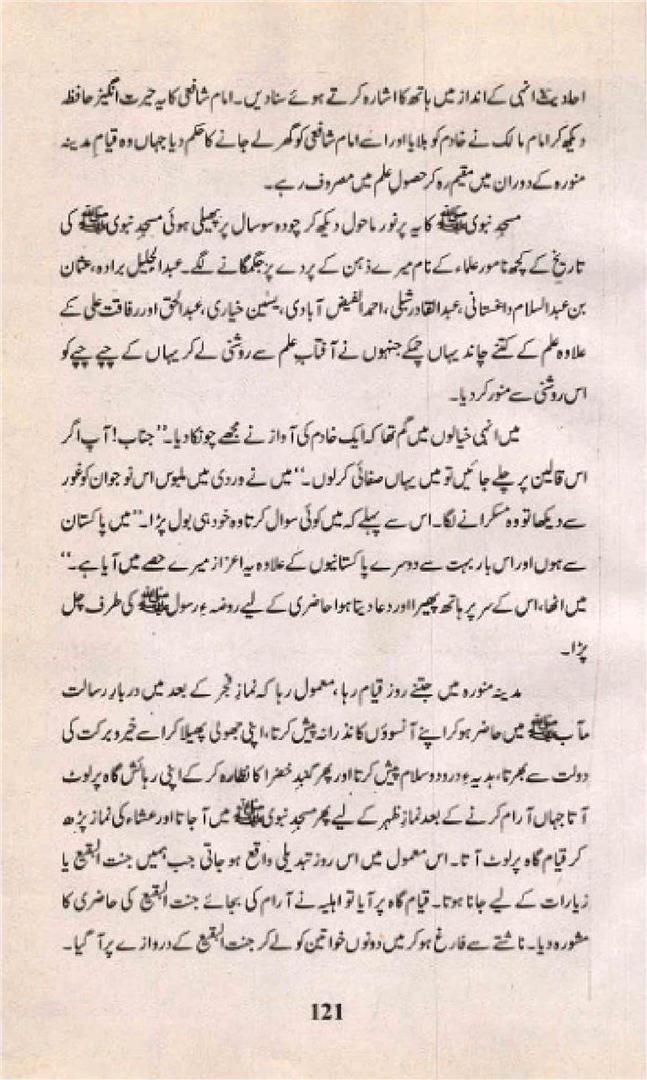 احادیث انہی کے انداز میں ہاتھ کا اشارہ کرتے ہوئے سنا دیں۔ امام شافعی کا یہ حیرت انگیز حافظہ
دیکھ کر امام مالک نے خادم کو بلایا اور اسے امام شافعی کو گھر لے جانے کا حکم دیا جہاں وہ قیامِ مدینہ
منورہ کے دوران میں مقیم رہ کر حصولِ علم میں مصروف رہے۔
مسجد نبوی ﷺ کا یہ پرنور ماحول دیکھ کر چودہ سو سال پر پھیلی ہوئی مسجد نبوی ﷺ کی
تاریخ کے کچھ نامور علماء کے نام میرے ذہن کے پردے پر جگمگانے لگے۔ عبدالجلیل برادہ، عثمان
بن عبدالسلام داغستانی، عبدالقادر شیلی، احمد الفیض آبادی، یٰسین خیاری، عبدالحق اور رفاقت علی کے
علاوہ علم کے کتنے چاند یہاں چمکے جنہوں نے آفتابِ علم سے روشنی لے کر یہاں کے چپے چپے کو
اس روشنی سے منور کر دیا۔
میں انہی خیالوں میں گم تھا کہ ایک خادم کی آواز نے مجھے چونکا دیا۔ ”جناب! آپ اگر
اس قالین پر چلے جائیں تو میں یہاں صفائی کر لوں۔“ میں نے وردی میں ملبوس اس نوجوان کو غور
سے دیکھا تو وہ مسکرانے لگا۔ اس سے پہلے کہ میں کوئی سوال کرتا وہ خود ہی بول پڑا۔ ”میں پاکستان
سے ہوں اور اس بار بہت سے دوسرے پاکستانیوں کے علاوہ یہ اعزاز میرے حصے میں آیا ہے۔“
میں اٹھا، اس کے سر پر ہاتھ پھیرا اور دعا دیتا ہوا حاضری کے لیے روضہء رسول ﷺ کی طرف چل
پڑا۔
مدینہ منورہ میں جتنے روز قیام رہا، معمول رہا کہ نمازِ فجر کے بعد میں دربارِ رسالت
مآب ﷺ میں حاضر ہو کر اپنے آنسوؤں کا نذرانہ پیش کرتا، اپنی جھولی پھیلا کر اسے خیر و برکت کی
دولت سے بھرتا، ہدیہء درود و سلام پیش کرتا اور پھر گنبدِ خضرا کا نظارہ کر کے اپنی رہائش گاہ پر لوٹ
آتا جہاں آرام کرنے کے بعد نمازِ ظہر کے لیے پھر مسجد نبوی ﷺ میں آ جاتا اور عشاء کی نماز پڑھ
کر قیام گاہ پر لوٹ آتا۔ اس معمول میں اس روز تبدیلی واقع ہو جاتی جب ہمیں جنت البقیع یا
زیارات کے لیے جانا ہوتا۔ قیام گاہ پر آیا تو اہلیہ نے آرام کی بجائے جنت البقیع کی حاضری کا
مشورہ دیا۔ ناشتے سے فارغ ہو کر میں دونوں خواتین کو لے کر جنت البقیع کے دروازے پر آ گیا۔
121